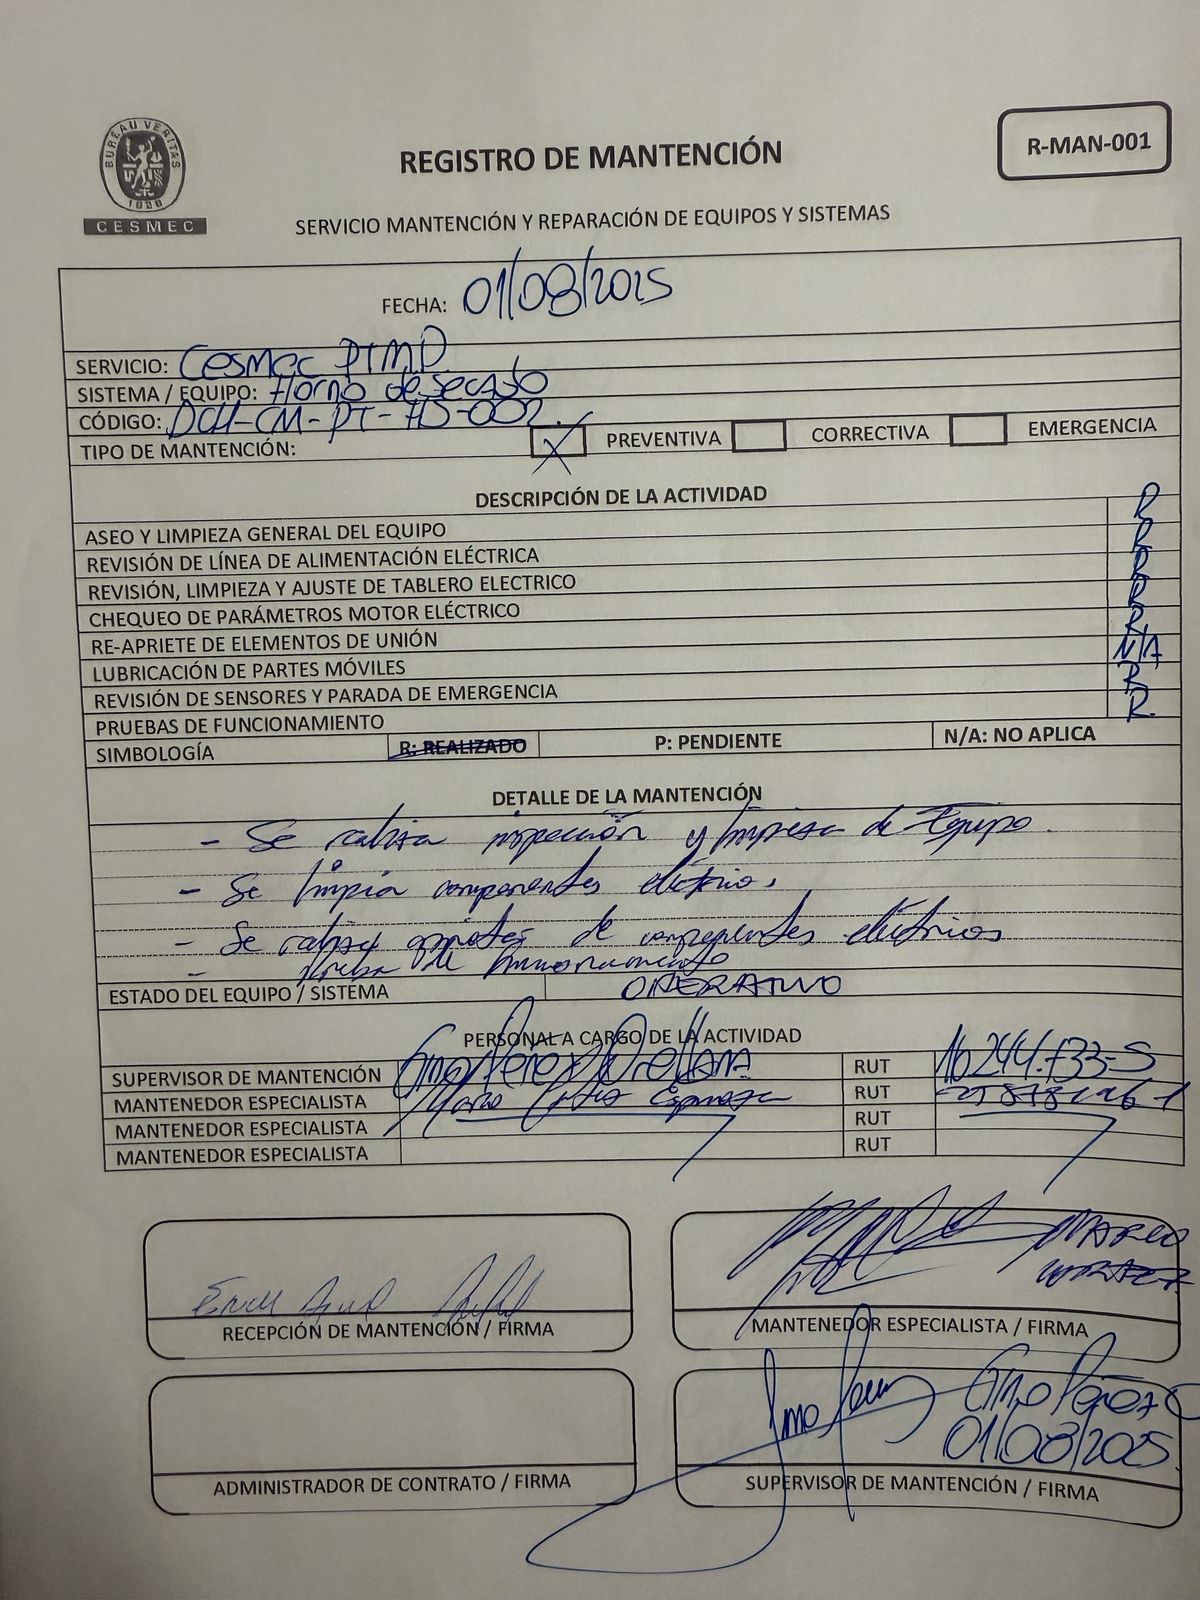 BUREAU VERITAS
1828
CESMEC
REGISTRO DE MANTENCIÓN
R-MAN-001
SERVICIO MANTENCIÓN Y REPARACIÓN DE EQUIPOS Y SISTEMAS
FECHA: 01/08/2025
SERVICIO: Cesmec PTMP
SISTEMA / EQUIPO: Horno de secado
CÓDIGO: DCH-CM-PT-HS-002
TIPO DE MANTENCIÓN: X PREVENTIVA CORRECTIVA EMERGENCIA
DESCRIPCIÓN DE LA ACTIVIDAD
ASEO Y LIMPIEZA GENERAL DEL EQUIPO R
REVISIÓN DE LÍNEA DE ALIMENTACIÓN ELÉCTRICA R
REVISIÓN, LIMPIEZA Y AJUSTE DE TABLERO ELECTRICO R
CHEQUEO DE PARÁMETROS MOTOR ELÉCTRICO R
RE-APRIETE DE ELEMENTOS DE UNIÓN R
LUBRICACIÓN DE PARTES MÓVILES N/A
REVISIÓN DE SENSORES Y PARADA DE EMERGENCIA R
PRUEBAS DE FUNCIONAMIENTO R
SIMBOLOGÍA R: REALIZADO P: PENDIENTE N/A: NO APLICA
DETALLE DE LA MANTENCIÓN
- Se realiza inspección y limpieza de Equipo.
- Se limpia componentes eléctrico.
- Se realiza aprietes de componentes eléctricos
- Prueba de funcionamiento
ESTADO DEL EQUIPO / SISTEMA OPERATIVO
PERSONAL A CARGO DE LA ACTIVIDAD
SUPERVISOR DE MANTENCIÓN Gino Pérez Orellana RUT 16.244.733-5
MANTENEDOR ESPECIALISTA Espinoza RUT
MANTENEDOR ESPECIALISTA RUT
MANTENEDOR ESPECIALISTA RUT
MARCO
RECEPCIÓN DE MANTENCIÓN / FIRMA
MANTENEDOR ESPECIALISTA / FIRMA
Gino Pérez O
01/08/2025
ADMINISTRADOR DE CONTRATO / FIRMA
SUPERVISOR DE MANTENCIÓN / FIRMA